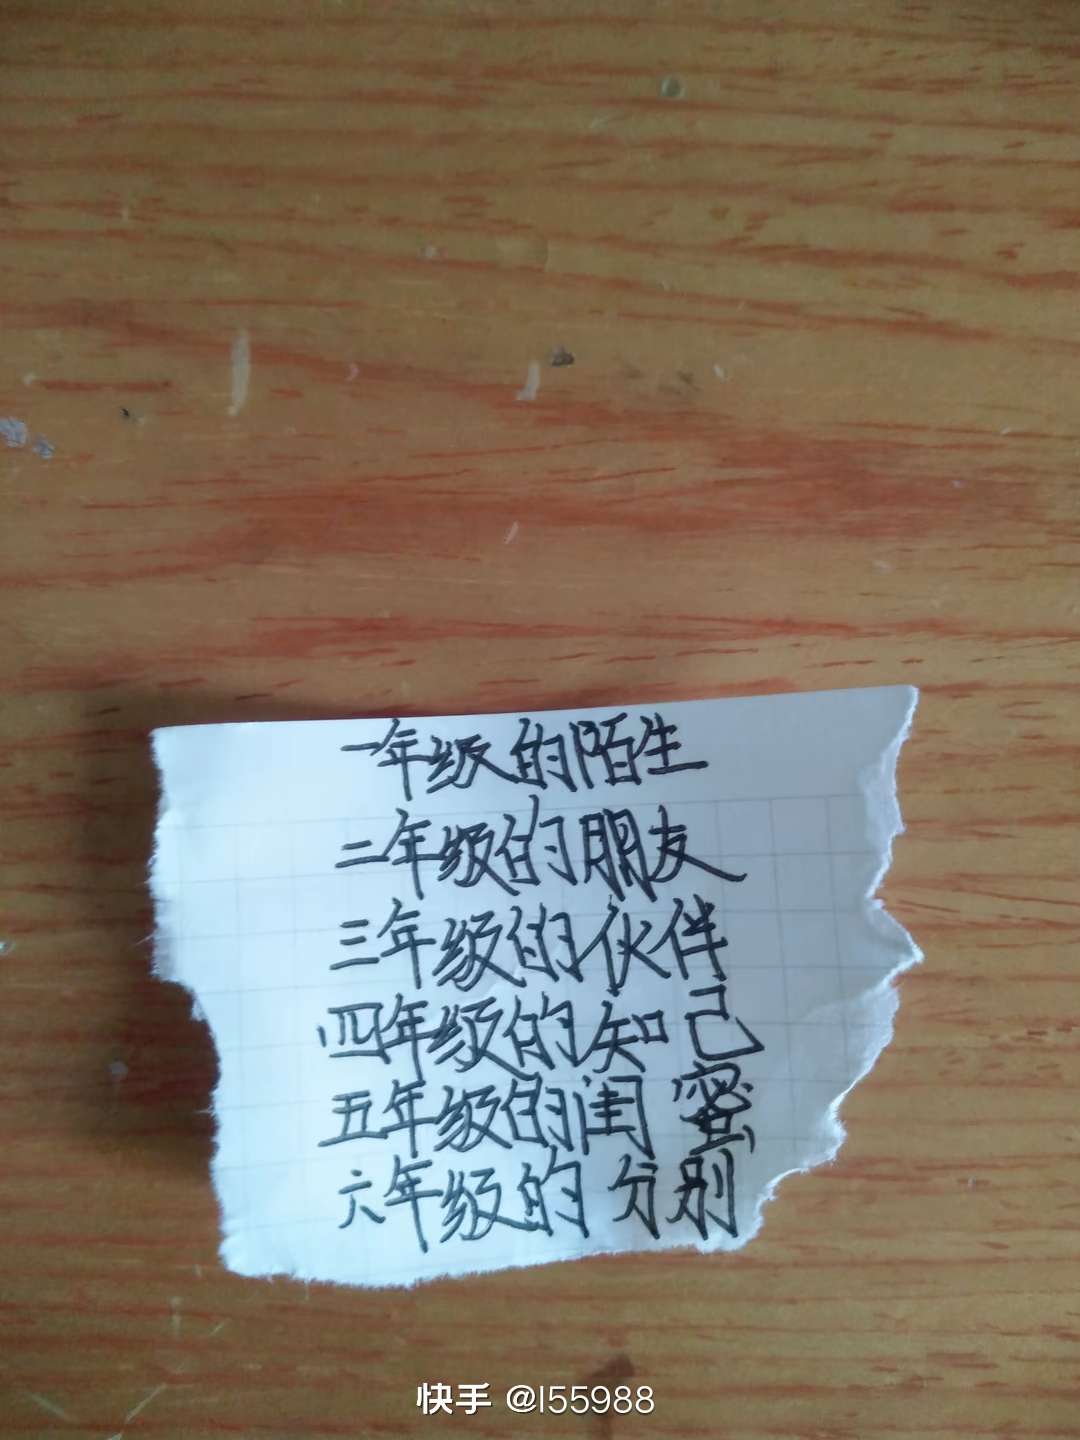 一年级的陌生
二年级的朋友
三年级的伙伴
四年级的知己
五年级的闺蜜
六年级的分别
快手 @l55988